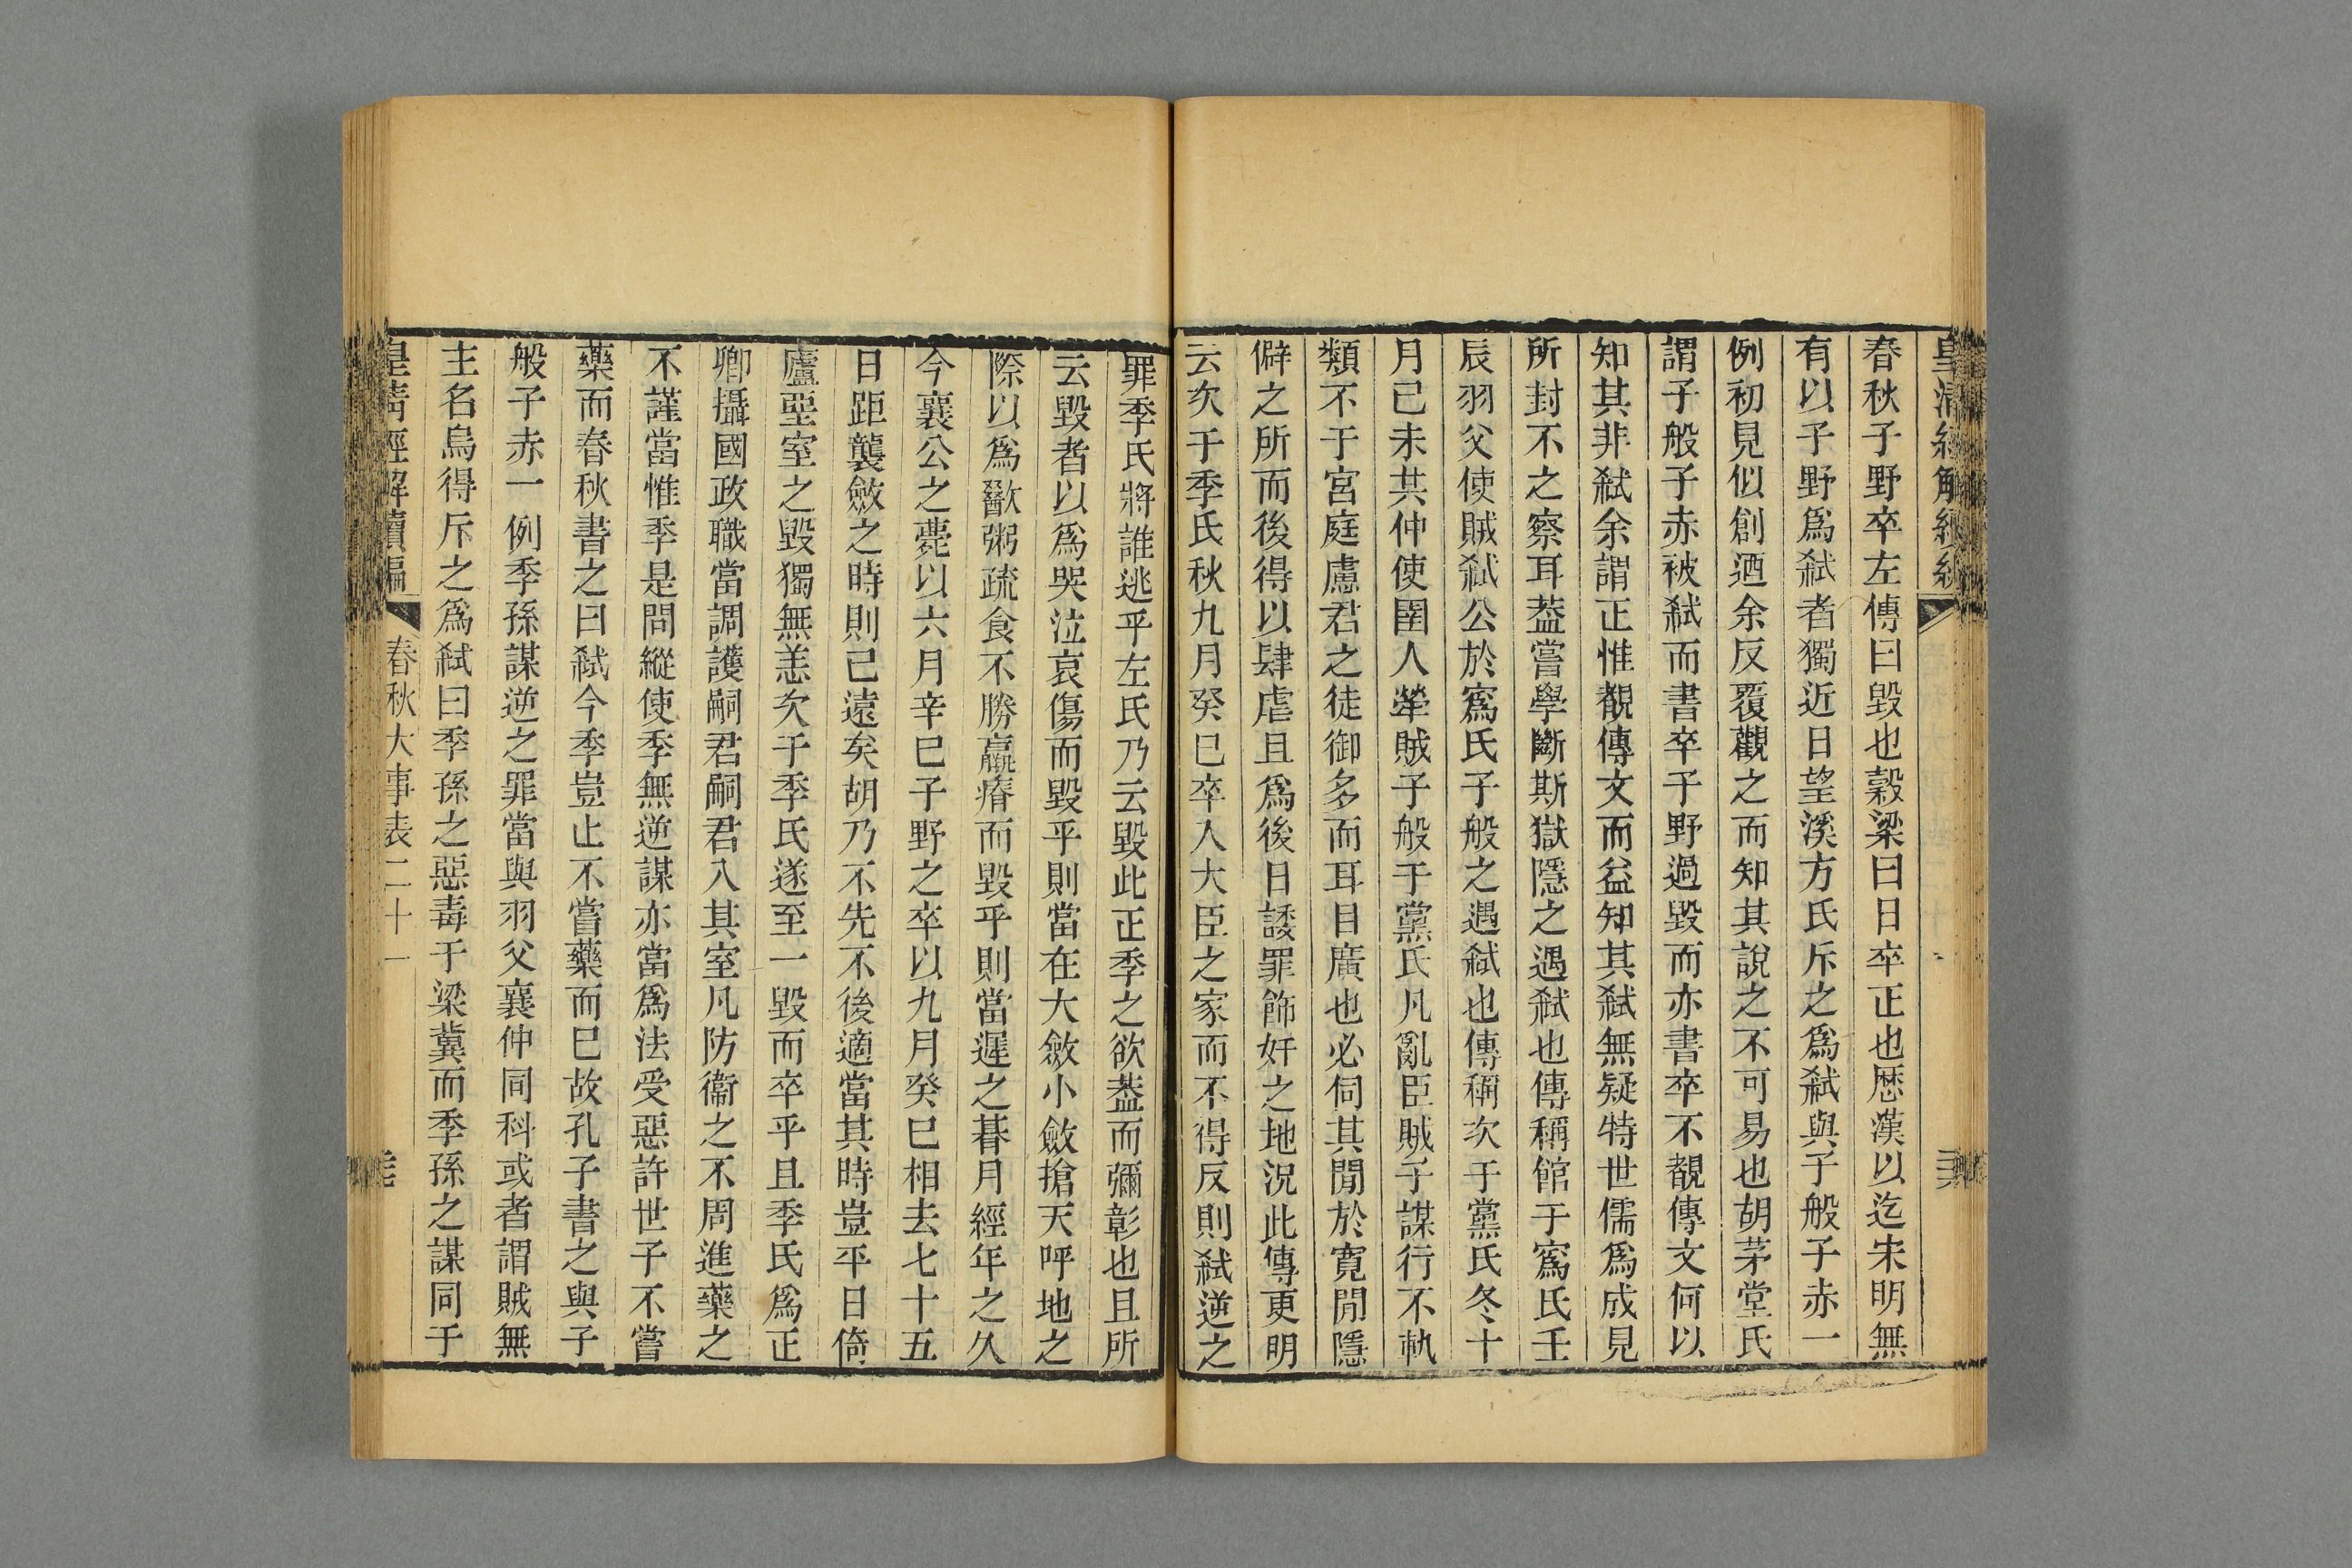 春秋子野卒左傳曰毀也穀梁曰日卒正也歷漢以迄宋明無
有以子野爲弒者獨近日望溪方氏斥之爲弒與子般子赤一
例初見似創迺余反覆觀之而知其說之不可易也胡茅堂氏
謂子般子赤被弒而書卒子野過毀而亦書卒不覩傳文何以
知其非弒余謂正惟覩傳文而益知其弒無疑特世儒爲成見
所封不之察耳葢嘗學斷斯獄隱之遇弒也傳稱館于寪氏壬
辰羽父使賊弒公於寪氏子般之遇弒也傳稱次于黨氏冬十
月己未共仲使圉人犖賊子般于黨氏凡亂臣賊子謀行不軌
類不于宮庭慮君之徒御多而耳目廣也必伺其閒於寬閒隱
僻之所而後得以肆虐且爲後日諉罪飾奸之地況此傳更明
云次于季氏秋九月癸巳卒入大臣之家而不得反則弒逆之
罪季氏將誰逃乎左氏乃云毀此正季之欲葢而彌彰也且所
云毀者以爲哭泣哀傷而毀乎則當在大斂小斂搶天呼地之
際以爲歠粥疏食不勝羸瘠而毀乎則當遲之朞月經年之久
今襄公之薨以六月辛巳子野之卒以九月癸巳相去七十五
日距襲斂之時則已遠矣胡乃不先不後適當其時豈平日倚
廬堊室之毀獨無恙次于季氏遂至一毀而卒乎且季氏爲正
卿攝國政職當調護嗣君嗣君入其室凡防衞之不周進藥之
不謹當惟季是問縱使季無逆謀亦當爲法受惡許世子不嘗
藥而春秋書之曰弒今季豈止不嘗藥而巳故孔子書之與子
般子赤一例季孫謀逆之罪當與羽父襄仲同科或者謂賊無
主名烏得斥之爲弒曰季孫之惡毒于梁冀而季孫之謀同于
皇清經解續編
春秋大事表二十一